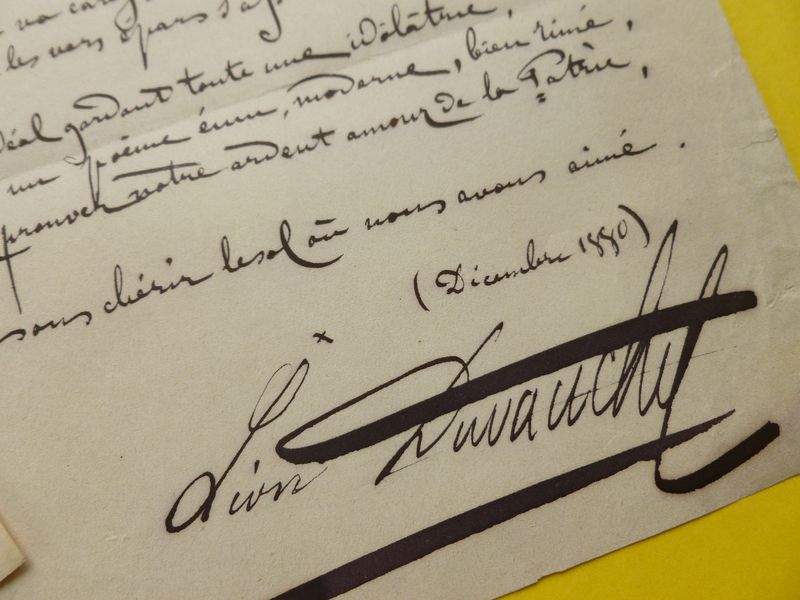 les vers épars s'a
déal gardant toute une idôlâtrie,
un poème ému, moderne, bien rimé,
prouver notre ardent amour de la Patrie,
sous chérir le sol où nous avons aimé.
(Décembre 1880)
x
Léon Duvauchel